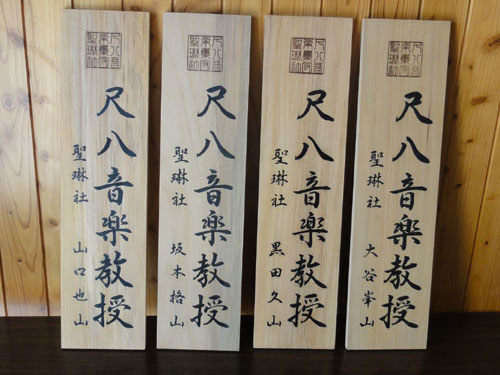 尺八音楽教授
聖琳社 大谷峯山
尺八音楽教授
聖琳社 黒田久山
尺八音楽教授
聖琳社 坂本格山
尺八音楽教授
聖琳社 山口也山